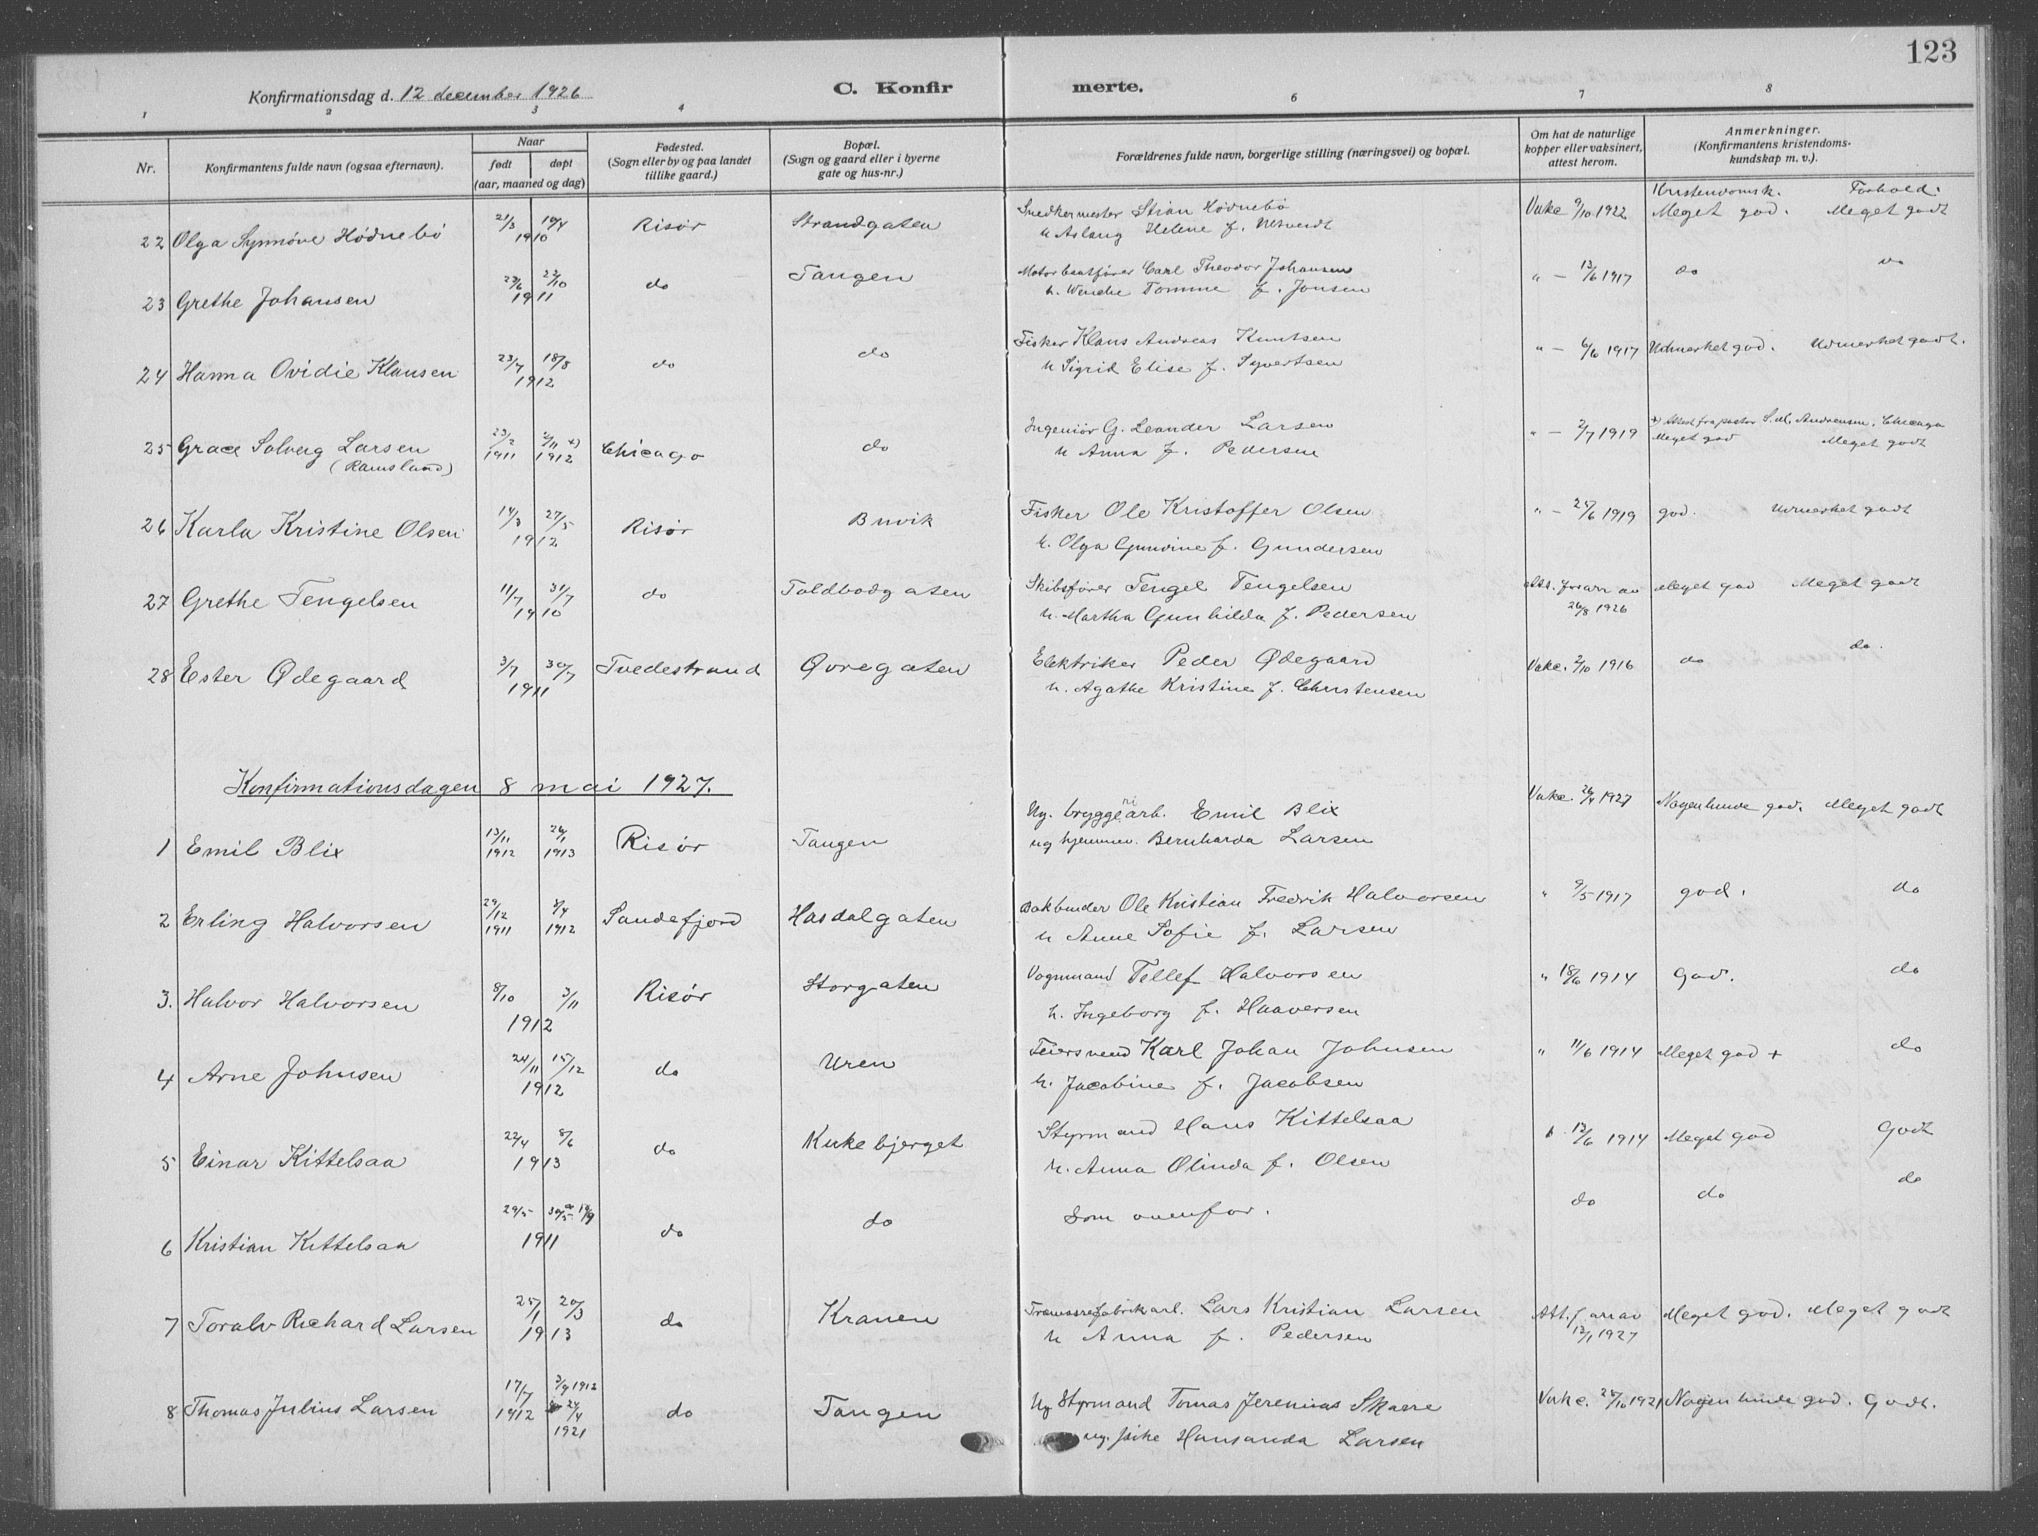 123
Konfirmationsdag d. 12 december 1926 C. Konfir merte.
1 2 3 4 6 7 8
Nr. Konfirmantens fulde navn (ogsaa efternavn). Naar født døpt (aar, maaned og dag) Fødested. (Sogn eller by og paa landet tillike gaard.) Bopæl. (Sogn og gaard eller i byerne gate og hus-nr.) Forældrenes fulde navn, borgerlige stilling (næringsvei) og bopæl. Om hat de naturlige kopper eller vaksinert, attest herom. Anmerkninger. (Konfirmantens kristendoms-kundskap m. v.).
Kristendomsk. Forhold.
22 Olga Synnöve Hødnebö 21/3 10/4 1910 Risør Strandgaten Snedkermester Stian Hødnebö Vake 9/10 1922 Meget god. Meget godt
u Aslaug Helene f.
23 Grethe Johansen 23/6 22/10 1911 do Tangen Motorbaatfører Carl Theodor Johansen " — 13/6 1917 do do
u. Wenche Tomine f. Jonsen
24 Hanna Ovidie Klausen 23/7 18/8 1912 do do Fisker Klaus Andreas Knutsen " — 6/6 1917 Udmerket god. Udmerket godt.
u Sigrid Elise f. Syvertsen
25 Grace Solveig Larsen (Ramsland) 23/2 1911 2/11 +) 1912 Chicago do Ingeniör G. Leander Larsen " — 2/7 1919 +) Attest fra pastor S. M. Andreensen, Chicago
u Anna f. Pedersen Meget god Meget godt
26 Karla Kristine Olsen 14/3 27/5 1912 Risør Buvik Fisker Ole Kristoffer Olsen " — 25/6 1919 god. Udmerket godt
u. Olga Gunvine f. Gundersen
27 Grethe Tengelsen 11/7 31/7 1910 do Toldbodgaten Skibsfører Tengel Tengelsen Att. foran av 26/8 1926 Meget god Meget godt
u. Martha Gunhilda f. Pedersen
28 Ester Ødegaard 3/7 30/7 1911 Tvedestrand Øvregaten Elektriker Peder Ødegaard Vake. 2/10 1916 do do.
u. Agathe Kristine f. Christensen
Konfirmationsdagen 8 mai 1927.
1 Emil Blix 13/11 1912 26/1 1913 Risør Tangen Ug. bryggeriarb. Emil Blix Vake. 26/4 1927 Nogenlunde god. Meget godt
ug hjemmev. Bernharda Larsen
2 Erling Halvorsen 29/12 1911 8/4 1912 Sandefjord Hasdalgaten Bokbinder Ole Kristian Fredrik Halvorsen " 9/5 1917 god. do
u Anne Sofie f. Larsen
3. Halvor Halvorsen 8/10 3/11 1912 Risør Storgaten Vognmand Tellef Halvorsen " 18/6 1914 God. do
u. Ingeborg f. Haaversen
4 Arne Johnsen 24/11 15/12 1912 do Uren Feiersvend Karl Johan Johnsen " 11/6 1914 Meget god + do
u. Jacobine f. Jacobsen
5 Einar Kittelsaa 22/4 8/6 1913 do Kirkebjerget Styrmand Hans Kittelsaa " 12/6 1914 Meget god Godt
u. Anna Olinda f. Olsen
6 Kristian Kittelsaa 29/5 1911 do do Som ovenfor. do do do
7 Toralv Richard Larsen 25/1 20/3 1913 do Kranen Trævarefabrikarb. Lars Kristian Larsen Att. f. arrav 12/1 1927 Meget god. Meget godt
u Anna f. Pedersen
8 Thomas Julius Larsen 17/7 1912 3/9 1912 24/4 1921 do Tangen Ug Styrmand Tomas Jeremias Skaere Vake. 28/10 1921 Nogenlunde god. Godt.
ug. pike Hansanda Larsen